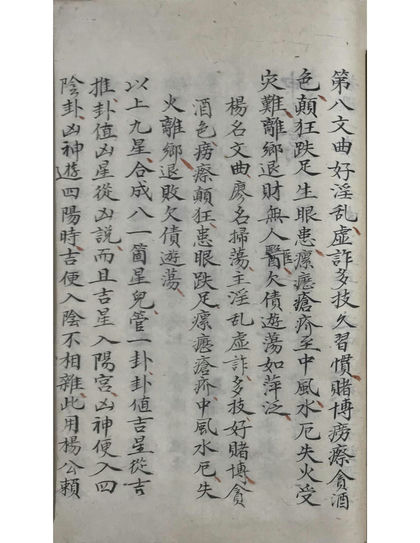 第八文曲好淫乱虛詐多技久習慣賭博癆瘵貪酒
色顛狂跌足生眼患瘰癧瘡疥至中風水厄失火受
灾難離鄉退財無人醫欠債遊蕩如萍泛
楊名文曲廖名掃蕩主淫乱虛詐多技好賭博貪
酒色癆瘵顛狂患眼跌足瘰癧瘡疥中風水厄失
火離鄉退敗欠債遊蕩
以上九星合成八一箇星兒管一卦卦值吉星從吉
推卦值凶星從凶說而且吉星入陽宮凶神便入四
陰卦凶神遊四陽時吉便入陰不相雜此用楊公賴